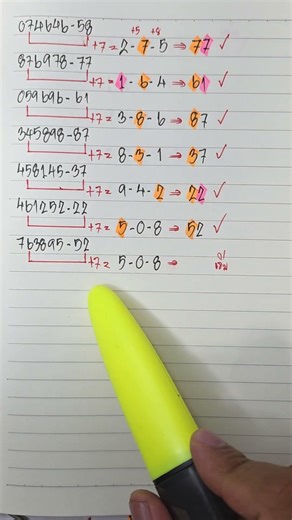 074646-58
+5 +8
+7 = 2-7-5 ⇒ 77 ✓
876978-77
+7 = 1-6-4 ⇒ 61 ✓
059696-61
+7 = 3-8-6 ⇒ 87 ✓
345898-87
+7 = 8-3-1 ⇒ 37 ✓
458145-37
+7 = 9-4-2 ⇒ 22 ✓
461252-22
+7 = 5-0-8 ⇒ 52 ✓
763895-52
+7 = 5-0-8 ⇒